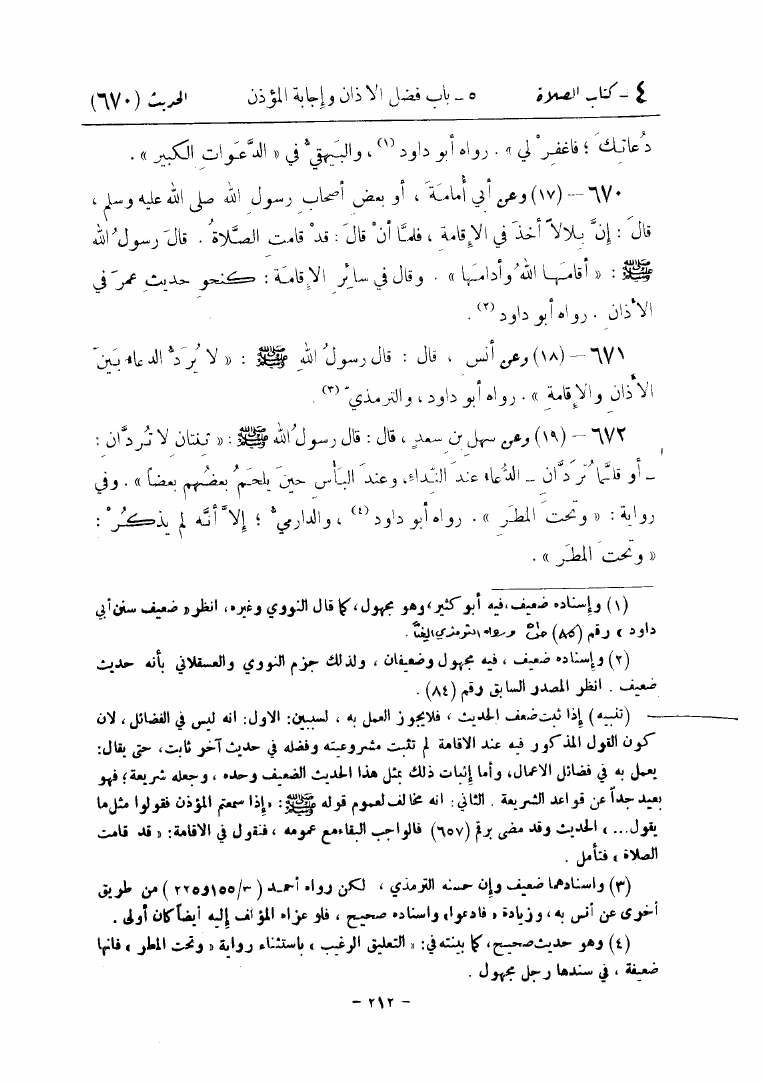 ٤ - كتاب الصلاة ٥ - باب فضل الاذان وإجابة المؤذن الحديث (٦٧٠)
دُعائِكَ ؛ فاغفِرْ لي » . رواه أبو داود (١) ، والبَيهقيُّ في « الدَّعَوات الكبير » .
٦٧٠ - (١٧) وعن أبي أُمامَةَ ، أو بعض أصحاب رسول الله صلى الله عليه وسلم ،
قالَ : إِنَّ بِلالاً أخذَ في الاقامة ، فلمَّا أنْ قالَ : قدْ قامتِ الصَّلاةُ . قالَ رسولُ الله
ﷺ : « أقامَها اللهُ وأدامَها » . وقال في سائِرِ الاقامَة : كنحوِ حديثِ عمرَ في
الأذان . رواه أبو داود (٢) .
٦٧١ - (١٨) وعن أنس ، قال : قال رسولُ اللهِ ﷺ : « لا يُرَدُّ الدعاءُ بَينَ
الأذانِ والاقامةِ » . رواه أبو داود ، والترمذيُّ (٣) .
٦٧٢ - (١٩) وعن سهلِ بنِ سعدٍ ، قال : قال رسولُ الله ﷺ : « ثِنتانِ لا تُردَّانِ :
- أو قلَّما تُردَّانِ - الدُّعاءُ عندَ النِّداءِ، وعندَ البَأْسِ حينَ يلحَمُ بعضُهم بعضاً » . وفي
رواية : « وتحتَ المطَر » . رواه أبو داود (٤) ، والدارميُّ ؛ إلاَّ أنَّه لم يذكُرْ :
« وتحتَ المطَر » .
(١) وإسناده ضعيف،فيه أبو كثير،وهو مجهول، كما قال النووي وغيره، انظر« ضعيف سنن أبي
داود » رقم (٨٥) ورواه الترمذي أيضاً .
(٢) وإسناده ضعيف ، فيه مجهول وضعيفان ، ولذلك جزم النووي والعسقلاني بأنه حديث
ضعيف . انظر المصدر السابق رقم (٨٤) .
(تنبيه) إذا ثبت ضعف الحديث ، فلايجوز العمل به ، لسببين: الاول: انه ليس في الفضائل ، لان
كون القول المذكور فيه عند الاقامة لم تثبت مشروعيته وفضله في حديث آخر ثابت، حتى يقال:
يعمل به في فضائل الاعمال، وأما إثبات ذلك بمثل هذا الحديث الضعيف وحده ، وجعله شريعة؛ فهو
بعيد جداً عن قواعد الشريعة . الثاني: انه مخالف لعموم قوله ﷺ: «إذا سمعتم المؤذن فقولوا مثل ما
يقول... » الحديث وقد مضى برقم (٦٥٧) فالواجب البقاء مع عمومه ، فنقول في الاقامة: « قد قامت
الصلاة » فتأمل .
(٣) واسنادهما ضعيف وإن حسنه الترمذي ، لكن رواه أحمد (٣/١٥٥و٢٢٥) من طريق
أخرى عن أنس به، وزيادة « فادعوا» واسناده صحيح ، فلو عزاه المؤلف إليه أيضاً كان أولى .
(٤) وهو حديث صحيح، كما بينته في: « التعليق الرغيب » باستثناء رواية « وتحت المطر » فانها
ضعيفة ، في سندها رجل مجهول .
- ٢١٢ -